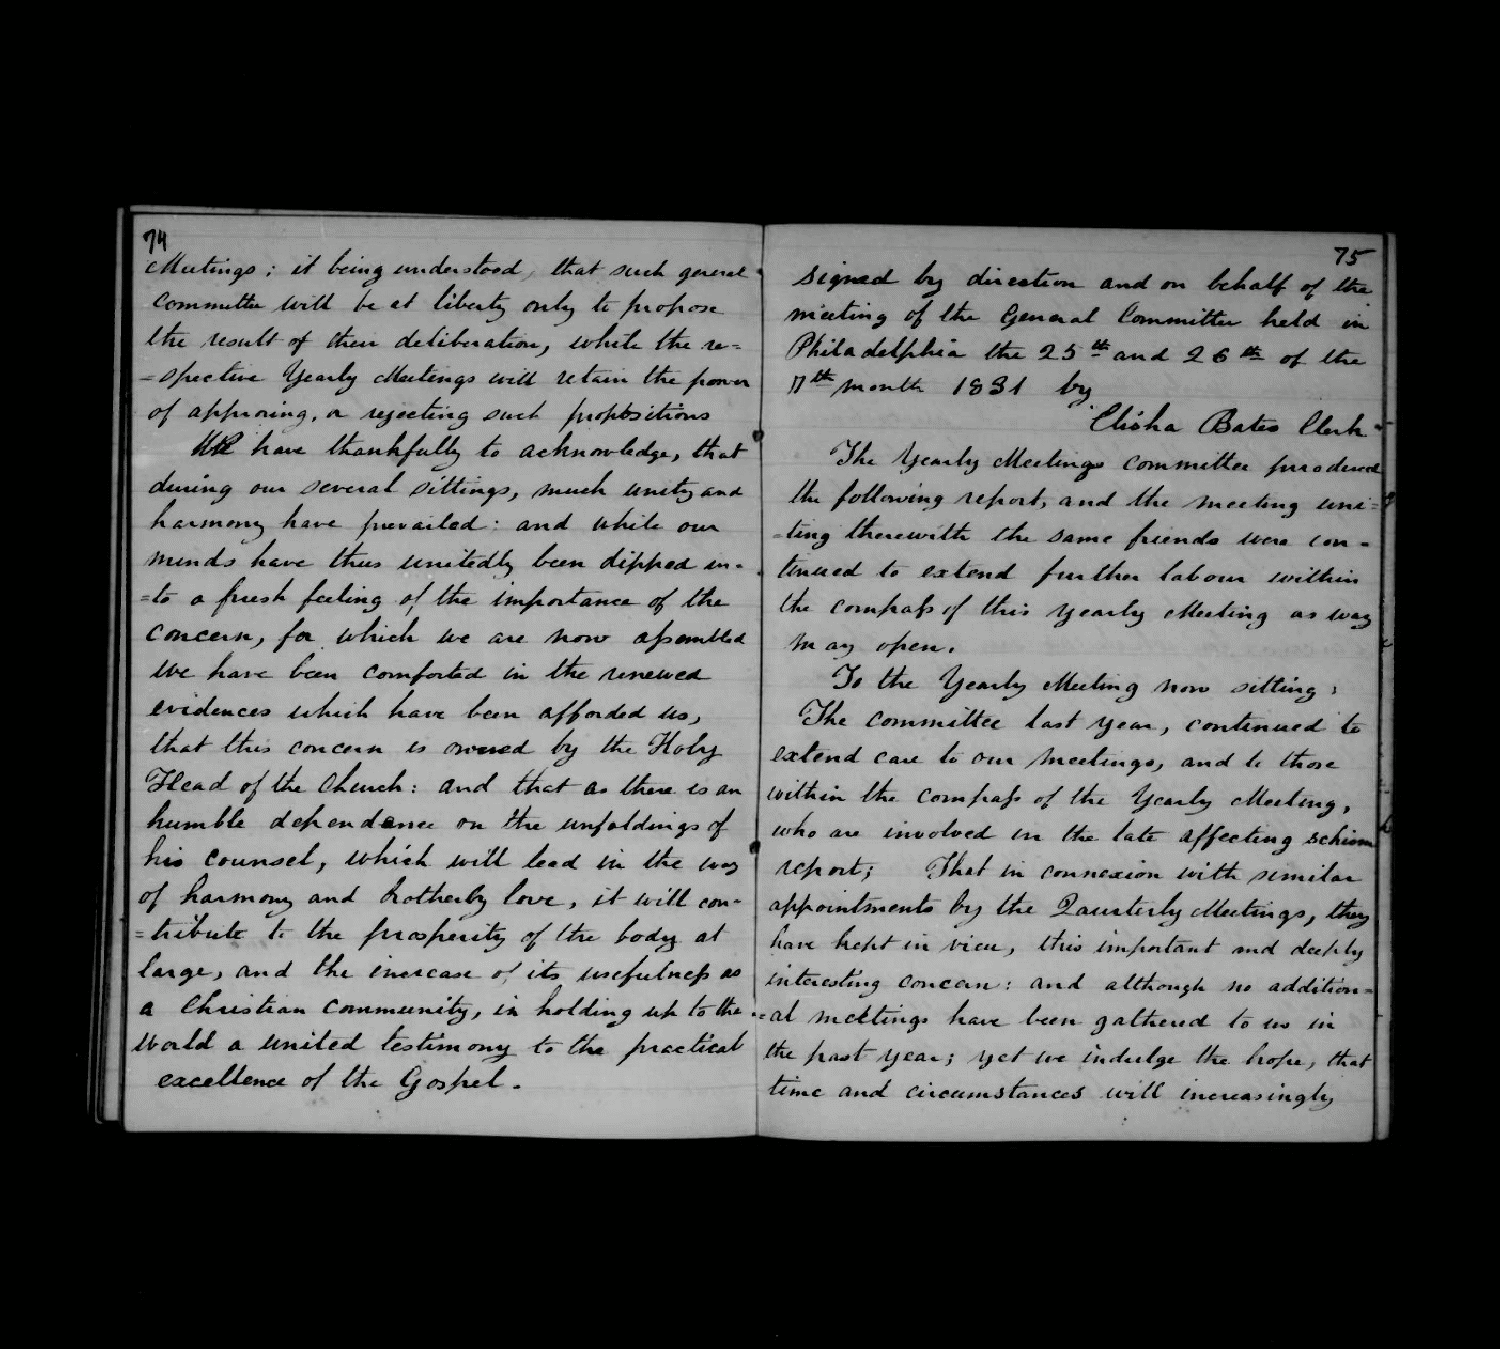 74
Meetings; it being understood, that such general
committee will be at liberty only to propose
the result of their deliberation, while the re=
=spective Yearly Meetings will retain the power
of approving, or rejecting such propositions
We have thankfully to acknowledge, that
during our several sittings, much unity and
harmony have prevailed: and while our
minds have thus unitedly been dipped in=
=to a fresh feeling of the importance of the
concern, for which we are now assembled
we have been comforted in the renewed
evidences which have been afforded us,
that this concern is owned by the Holy
Head of the Church: and that as there is an
humble dependance on the unfoldings of
his counsel, which will lead in the way
of harmony and brotherly love, it will con=
=tribute to the prosperity of the body at
large, and the increase of its usefulness as
a Christian community, in holding up to the
world a united testimony to the practical
excellence of the Gospel.
75
signed by direction and on behalf of the
meeting of the General Committee held in
Philadelphia the 25th and 26th of the
7th month 1831 by
Elisha Bates Clerk
The Yearly Meetings committee produced
the following report, and the meeting uni=
=ting therewith the same friends were con=
tinued to extend further labour within
the compass of this Yearly Meeting as way
may open.
To the Yearly Meeting now sitting;
The committee last year, continued to
extend care to our meetings, and to those
within the compass of the Yearly Meeting,
who are involved in the late affecting schism
report; That in connexion with similar
appointments by the Quarterly Meetings, they
have kept in view, this important and deeply
interesting concern: and although no addition=
=al meetings have been gathered to us in
the past year; yet we indulge the hope, that
time and circumstances will increasingly